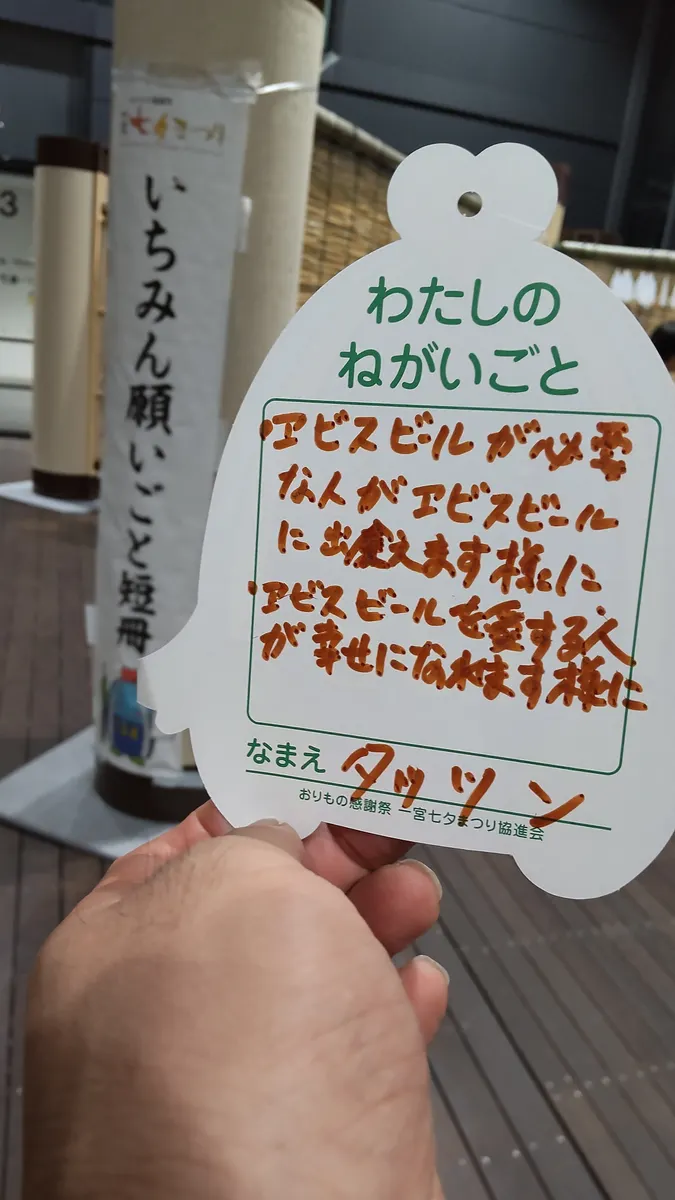 七夕まつり
いちみん願いごと短冊
3
わたしの
ねがいごと
・ヱビスビールが必要
な人がヱビスビール
に出逢えます様に
・ヱビスビールを愛する人
が幸せになれます様に
なまえ タッツン
おりもの感謝祭 一宮七夕まつり協進会